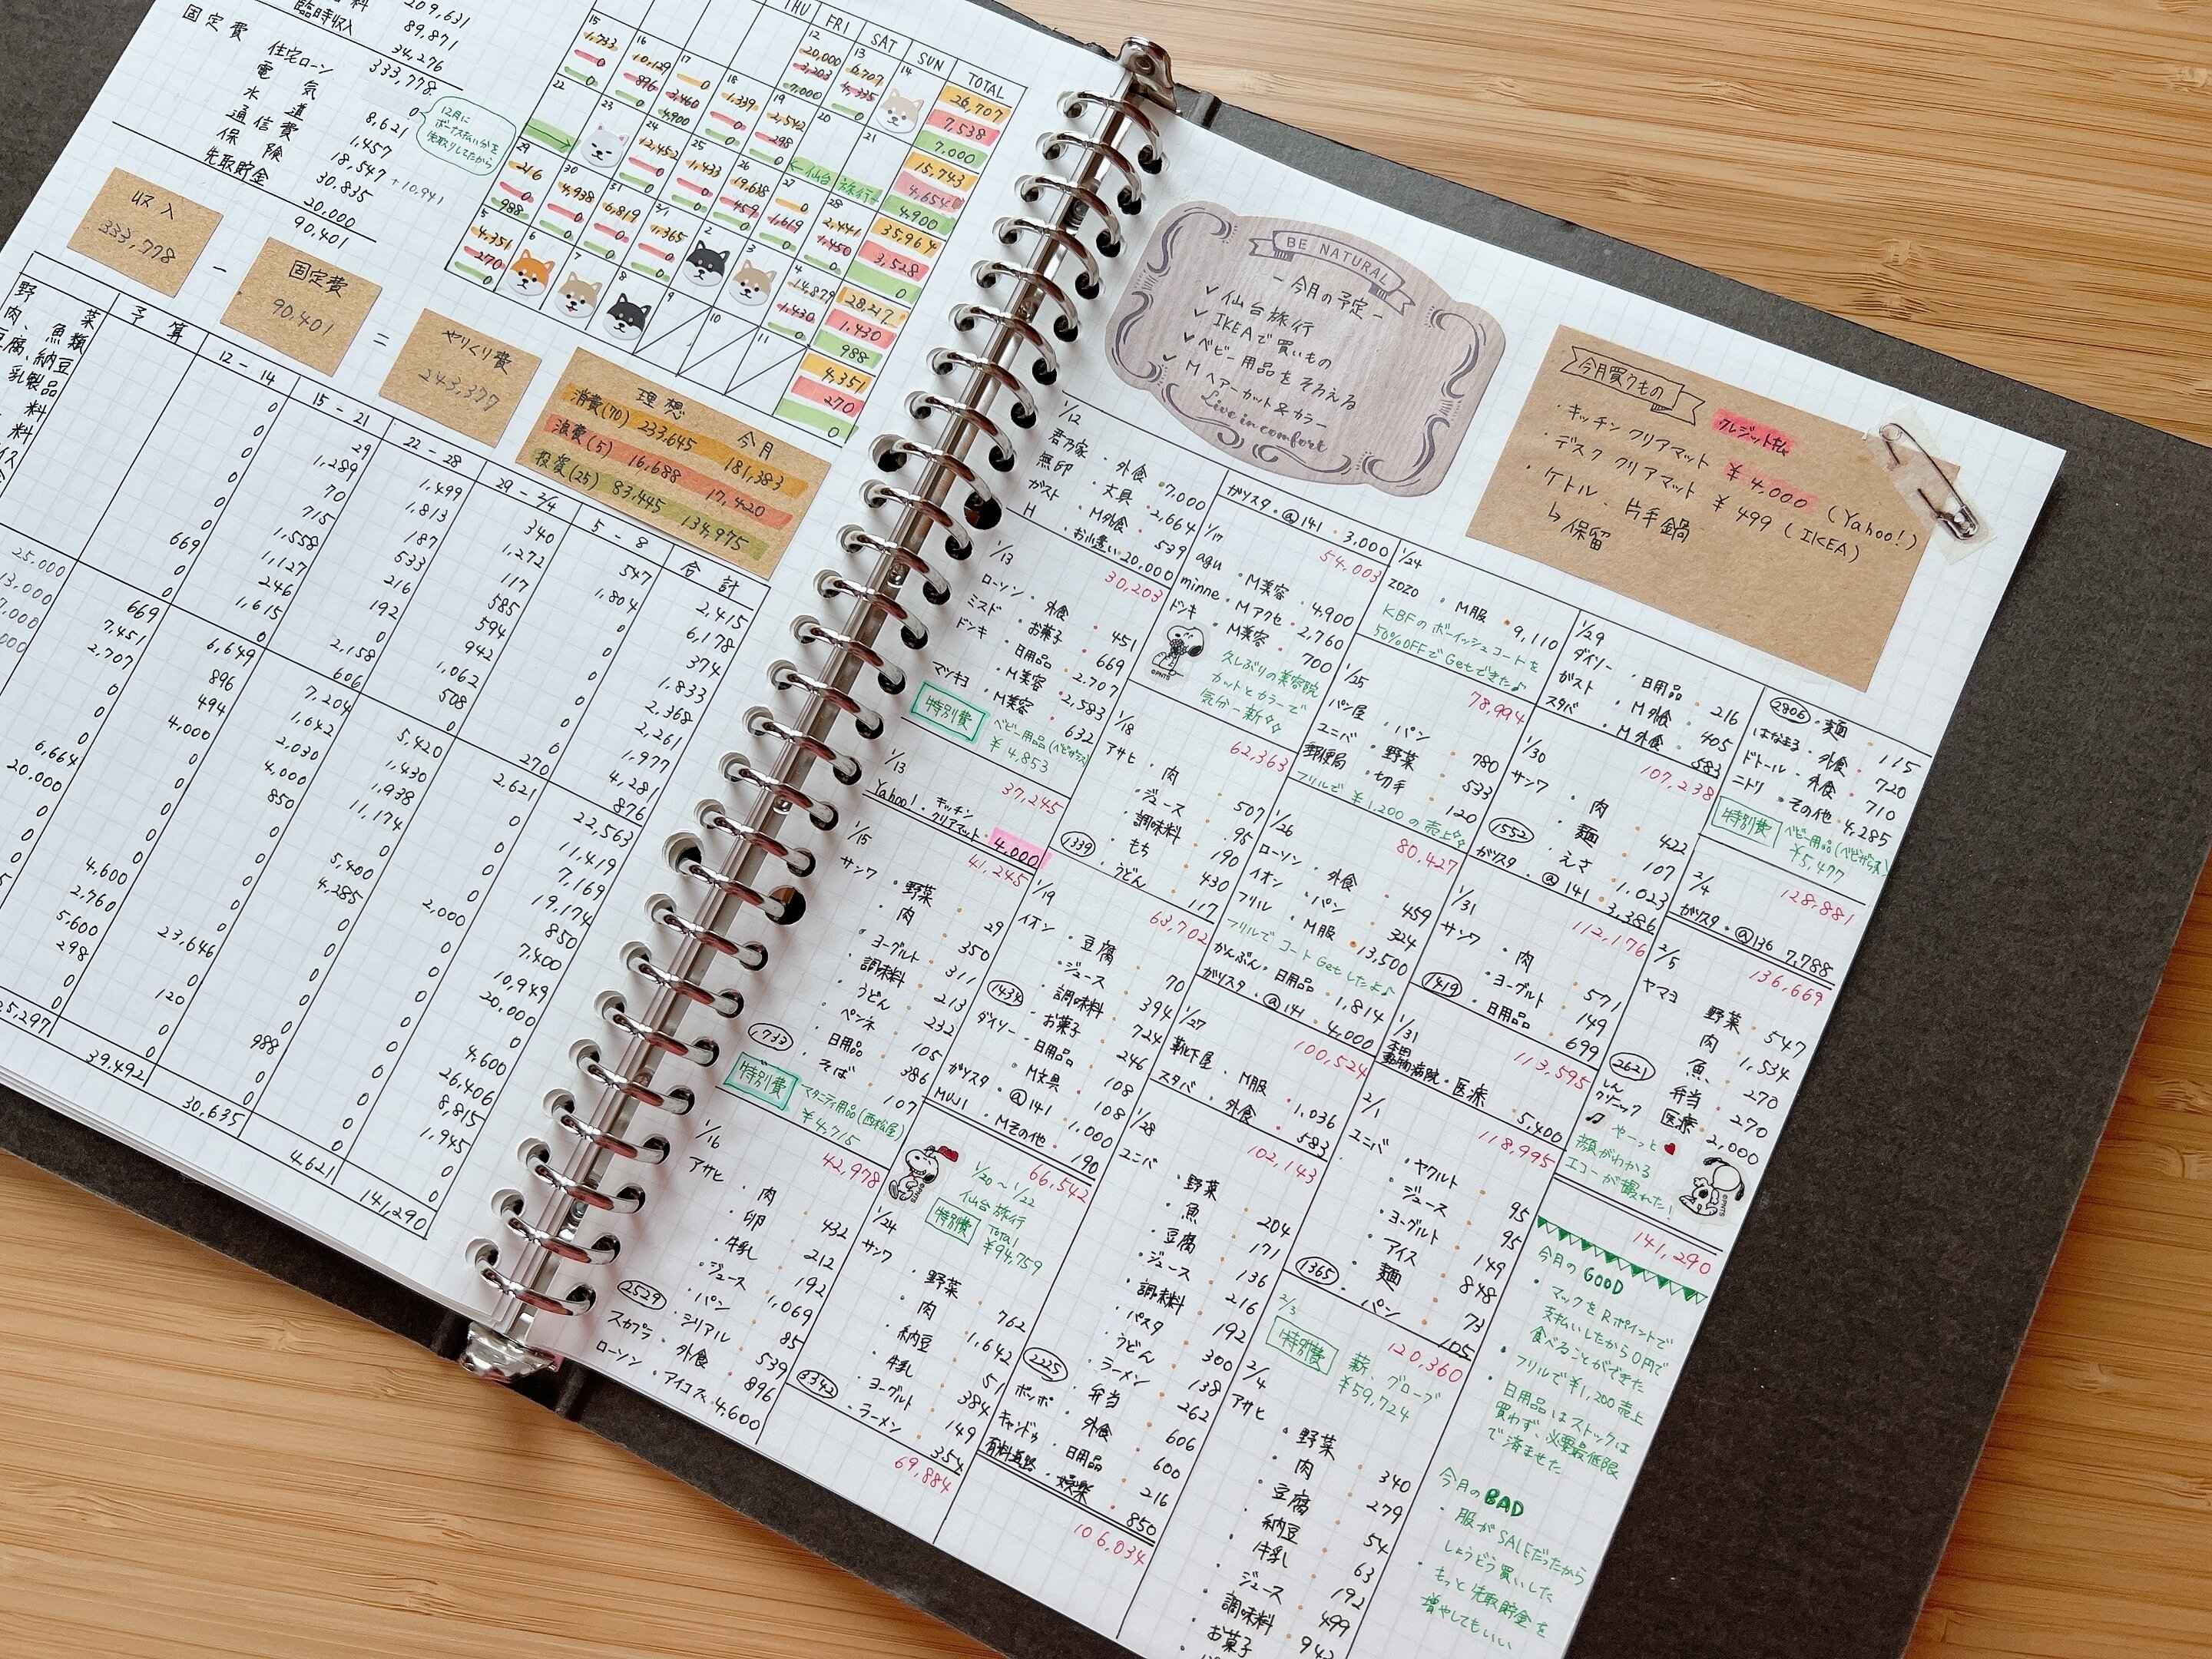 209,631
臨時収入 89,871
34,276
333,778
固定費
住宅ローン 0
電気 8,621
水道 1,457
通信費 18,547 +10,941
保険 30,835
先取貯金 20,000
90,401
12月に
ボーナス払い分を
先取りしてたから
収入
333,778
-
固定費
90,401
=
やりくり費
243,377
理想 今月
消費(70) 233,645 181,383
浪費(5) 16,688 17,420
投資(25) 83,445 134,975
THU FRI SAT SUN TOTAL
12 13 14
20,000 6,707 26,707
3,203 4,335 7,538
7,000 0 7,000
15 16 17 18 19 20 21
1,733 10,129 0 1,339 2,542 15,743
0 896 3,460 0 298 4,654
0 0 4,900 0 0 4,900
22 23 24 25 26 27 28
←仙台旅行→
12,452 1,433 19,638 0 2,441 35,964
0 0 459 1,619 1,450 3,528
0 0 0 0 0 0
29 30 31 2/1 2 3 4
216 4,938 6,819 1,365 14,879 28,217
0 0 0 0 1,430 1,430
988 0 0 0 0 988
5 6 7 8 9 10 11
4,351 4,351
270 270
0 0
野菜
肉、魚類
豆腐、納豆
乳製品
予算 12-14 15-21 22-28 29-2/4 5-8 合計
0 29 1,499 340 547 2,415
0 1,289 1,813 1,272 1,804 6,178
0 70 187 117 0 374
0 715 533 585 0 1,833
0 1,558 216 594 0 2,368
0 1,127 192 942 0 2,261
669 246 0 1,062 0 1,977
0 1,615 2,158 508 0 4,281
0 0 606 0 270 876
25,000 669 6,649 7,204 5,420 2,621 22,563
13,000 7,451 896 1,642 1,430 0 11,419
2,707 494 2,030 1,938 0 7,169
0 4,000 4,000 11,174 0 19,174
0 0 850 0 0 850
0 0 0 5,400 2,000 7,400
6,664 0 0 4,285 0 10,949
20,000 0 0 0 0 20,000
0 4,600 0 0 0 4,600
0 2,760 23,646 0 0 26,406
5,600 0 0 0 8,815
298 120 988 0 1,945
25,297 39,492 30,635 4,621 141,290
BE NATURAL
-今月の予定-
✓仙台旅行
✓IKEAで買いもの
✓ベビー用品をそろえる
✓Mヘアーカット&カラー
Live in comfort
今月買うもの
クレジット払
・キッチンクリアマット ¥4,000 (Yahoo!)
・デスククリアマット ¥499 (IKEA)
・ケトル・片手鍋
↳保留
1/12
君乃家・外食・7,000
無印・文具・2,664
ガスト・M外食・539
H・お小遣い・20,000
30,203
1/13
ローソン・外食・451
ミスド・お菓子・669
ドンキ・日用品・2,707
・M美容・2,583
マツキヨ・M美容・632
特別費 ベビー用品(ベビザらス)
¥4,853
37,245
1/13
Yahoo!・キッチンクリアマット・4,000
41,245
1/15
サンワ・野菜・29
・肉・350
・ヨーグルト・311
・調味料・213
・うどん・232
・ペンネ・105
・日用品・386
1,733・そば・107
特別費 マタニティ用品(西松屋)
¥4,715
42,978
1/16
アサヒ・肉・432
・卵・212
・牛乳・192
・ジュース・1,069
・パン・85
2529・シリアル・539
スカブラ・外食・896
ローソン・アイコス・4,600
ガソスタ・@141・3,000
54,003
1/17
agu・M美容・4,900
minne・Mアクセ・2,760
ドンキ・M美容・700
久しぶりの美容院
カットとカラーで
気分一新
©PNTS
62,363
1/18
アサヒ・肉・507
・ジュース・95
・調味料・190
・もち・430
1339・うどん・117
63,702
1/19
イオン・豆腐・70
・ジュース・394
・調味料・724
1434・お菓子・246
ダイソー・日用品・108
・M文具・108
ガソスタ・@141・1,000
MUJI・Mその他・190
66,542
1/20~1/22
仙台旅行
特別費 Total
¥94,759
1/24
サンワ・野菜・762
・肉・1,642
・納豆・51
・牛乳・384
・ヨーグルト・149
3342・ラーメン・354
69,884
1/24
ZOZO・M服・9,110
KBFのボーイッシュコートを
50%OFFでGetできた♪
78,994
1/25
パン屋・パン・780
ユニバ・野菜・533
郵便局・切手・120
フリルで¥1,200の売上
80,427
1/26
ローソン・外食・459
イオン・パン・324
フリル・M服・13,500
フリルでコートGetしたよ♪
かんぶん・日用品・1,814
ガソスタ・@141・4,000
100,524
1/27
靴下屋・M服・1,036
スタバ・外食・583
102,143
1/28
ユニバ・野菜・204
・魚・171
・豆腐・136
・ジュース・216
・調味料・192
・パスタ・300
・うどん・138
・ラーメン・262
2225・弁当・606
ポンポ・外食・600
キャンドゥ・日用品・216
有料道路・娯楽・850
106,034
1/29
ダイソー・日用品・216
ガスト・M外食・405
スタバ・M外食・583
107,238
1/30
サンワ・肉・422
・麺・107
1552・えさ・1,023
ガソスタ・@141・3,386
112,176
1/31
サンワ・肉・571
・ヨーグルト・149
1419・日用品・699
113,595
1/31
本田動物病院・医療・5,400
118,995
2/1
ユニバ・ヤクルト・95
・ジュース・95
・ヨーグルト・149
・アイス・848
・麺・73
1365・パン・105
120,360
2/3
特別費 薪、グローブ
¥59,724
2/4
アサヒ・野菜・340
・肉・279
・豆腐・54
・納豆・63
・牛乳・192
・ジュース・499
・調味料・942
・お菓子
2806・麺・115
はなまる・外食・720
ドトール・外食・710
ニトリ・その他・4,285
特別費 ベビー用品(ベビザらス)
¥5,477
128,881
2/4
ガソスタ・@136 7,788
136,669
2/5
ヤマヨ 野菜・547
肉・1,534
魚・270
2621 弁当・270
しんクリニック 医療・2,000
♫ やーっと♥
顔がわかる
エコーが撮れた!
©PNTS
141,290
今月のGOOD
・マックをRポイントで
支払いしたから0円で
食べることができた
・フリルで¥1,200売上
・日用品はストックは
買わず、必要最低限
で済ませた
今月のBAD
・服がSALEだったから
しょうどう買いした
・もっと先取貯金を
増やしてもいい